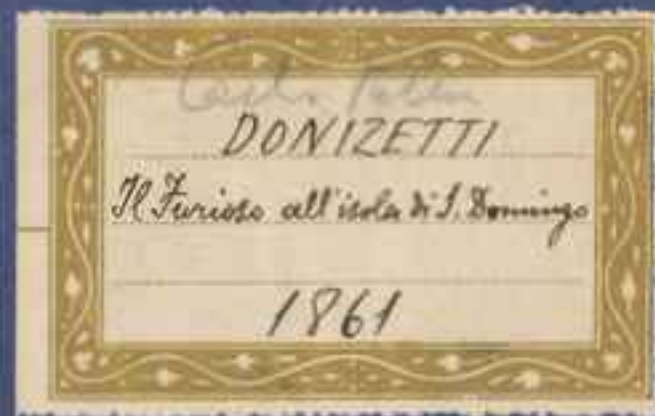 Carlo
DONIZETTI
Il Furioso all'isola di S. Domingo
1861